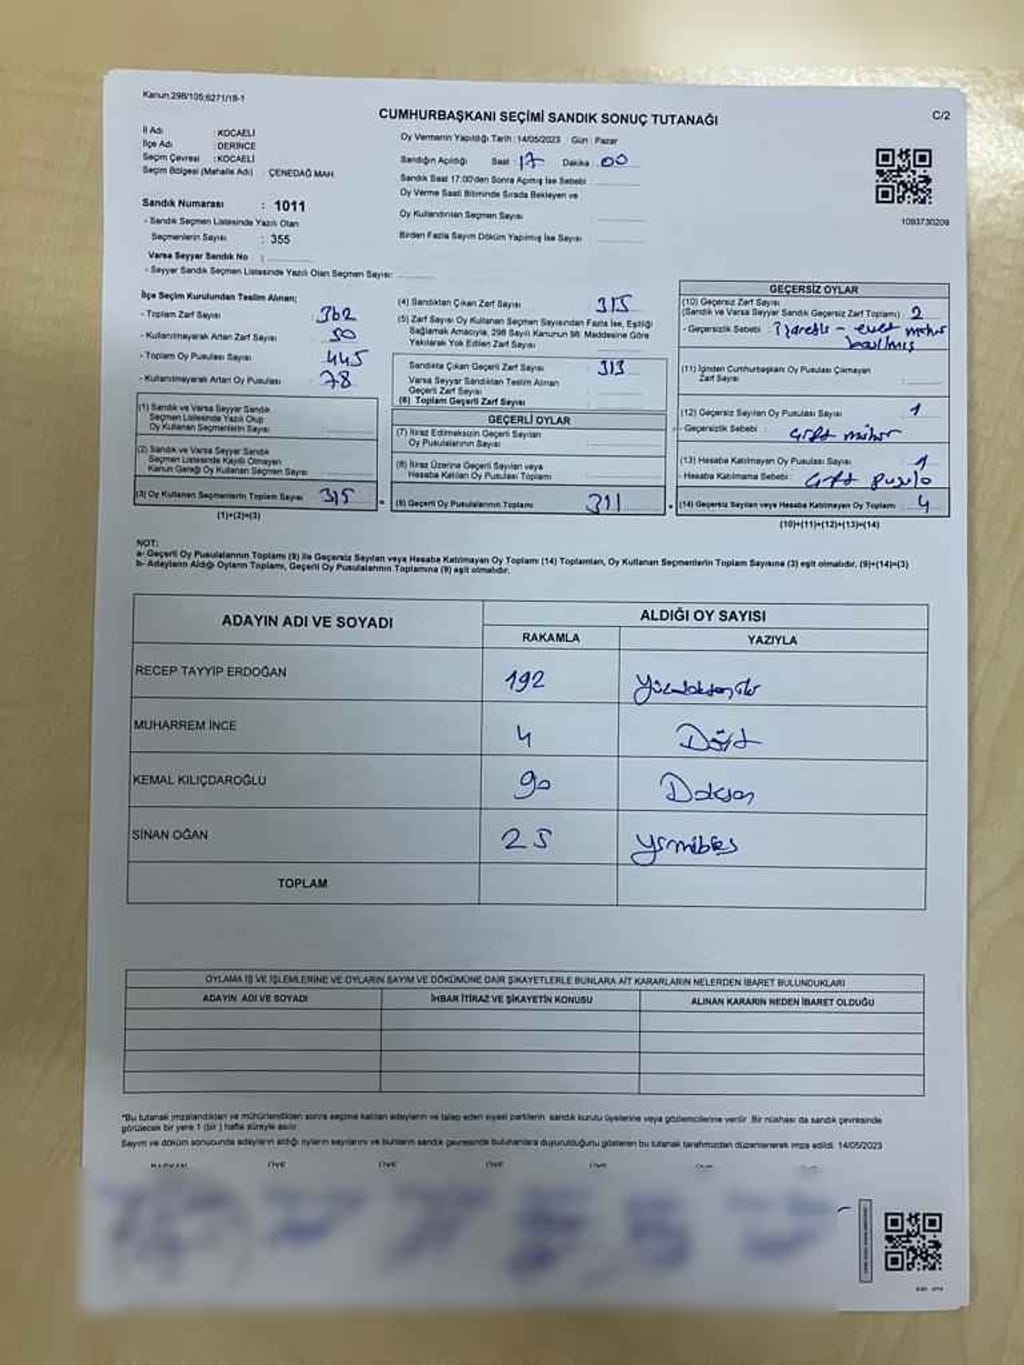 Kanun:298/105;6271/18-1
C/2
CUMHURBAŞKANI SEÇİMİ SANDIK SONUÇ TUTANAĞI
İl Adı : KOCAELİ
İlçe Adı : DERİNCE
Seçim Çevresi : KOCAELİ
Seçim Bölgesi (Mahalle Adı) ÇENEDAĞ MAH.
Sandık Numarası : 1011
- Sandık Seçmen Listesinde Yazılı Olan
Seçmenlerin Sayısı : 355
Varsa Seyyar Sandık No :
- Seyyar Sandık Seçmen Listesinde Yazılı Olan Seçmen Sayısı:
Oy Vermenin Yapıldığı Tarih : 14/05/2023 Gün : Pazar
Sandığın Açıldığı Saat : 17 Dakika : 00
Sandık Saat 17:00'den Sonra Açılmış İse Sebebi
Oy Verme Saati Bitiminde Sırada Bekleyen ve
Oy Kullandırılan Seçmen Sayısı
Birden Fazla Sayım Döküm Yapılmış İse Sayısı :
1093730209
İlçe Seçim Kurulundan Teslim Alınan;
- Toplam Zarf Sayısı : 362
- Kullanılmayarak Artan Zarf Sayısı : 50
- Toplam Oy Pusulası Sayısı : 445
- Kullanılmayarak Artan Oy Pusulası : 78
(1) Sandık ve Varsa Seyyar Sandık
Seçmen Listesinde Yazılı Olup
Oy Kullanan Seçmenlerin Sayısı :
(2) Sandık ve Varsa Seyyar Sandık
Seçmen Listesinde Kayıtlı Olmayan
Kanun Gereği Oy Kullanan Seçmen Sayısı :
(3) Oy Kullanan Seçmenlerin Toplam Sayısı 315
(1)+(2)=(3)
(4) Sandıktan Çıkan Zarf Sayısı 315
(5) Zarf Sayısı Oy Kullanan Seçmen Sayısından Fazla İse, Eşitliği
Sağlamak Amacıyla, 298 Sayılı Kanunun 98. Maddesine Göre
Yakılarak Yok Edilen Zarf Sayısı
Sandıkta Çıkan Geçerli Zarf Sayısı 313
Varsa Seyyar Sandıktan Teslim Alınan
Geçerli Zarf Sayısı
(6) Toplam Geçerli Zarf Sayısı
GEÇERLİ OYLAR
(7) İtiraz Edilmeksizin Geçerli Sayılan
Oy Pusulalarının Sayısı
(8) İtiraz Üzerine Geçerli Sayılan veya
Hesaba Katılan Oy Pusulası Toplamı
(9) Geçerli Oy Pusulalarının Toplamı 311
GEÇERSİZ OYLAR
(10) Geçersiz Zarf Sayısı
(Sandık ve Varsa Seyyar Sandık Geçersiz Zarf Toplamı) 2
- Geçersizlik Sebebi : İşaretli - evet mühür
basılmış
(11) İçinden Cumhurbaşkanı Oy Pusulası Çıkmayan
Zarf Sayısı :
(12) Geçersiz Sayılan Oy Pusulası Sayısı 1
- Geçersizlik Sebebi : Çift mühür
(13) Hesaba Katılmayan Oy Pusulası Sayısı 1
- Hesaba Katılmama Sebebi : Çift pusula
(14) Geçersiz Sayılan veya Hesaba Katılmayan Oy Toplamı 4
(10)+(11)+(12)+(13)=(14)
NOT:
a- Geçerli Oy Pusulalarının Toplamı (9) ile Geçersiz Sayılan veya Hesaba Katılmayan Oy Toplamı (14) Toplamları, Oy Kullanan Seçmenlerin Toplam Sayısına (3) eşit olmalıdır. (9)+(14)=(3)
b- Adayların Aldığı Oyların Toplamı, Geçerli Oy Pusulalarının Toplamına (9) eşit olmalıdır.
ADAYIN ADI VE SOYADI
ALDIĞI OY SAYISI
RAKAMLA YAZIYLA
RECEP TAYYİP ERDOĞAN 192 Yüzdoksaniki
MUHARREM İNCE 4 Dört
KEMAL KILIÇDAROĞLU 90 Doksan
SİNAN OĞAN 25 Yirmibeş
TOPLAM
OYLAMA İŞ VE İŞLEMLERİNE VE OYLARIN SAYIM VE DÖKÜMÜNE DAİR ŞİKAYETLERLE BUNLARA AİT KARARLARIN NELERDEN İBARET BULUNDUKLARI
ADAYIN ADI VE SOYADI İHBAR İTİRAZ VE ŞİKAYETİN KONUSU ALINAN KARARIN NEDEN İBARET OLDUĞU
"Bu tutanak imzalandıktan ve mühürlendikten sonra seçime katılan adayların ve talep eden siyasi partilerin sandık kurulu üyelerine veya gözlemcilerine verilir. Bir nüshası da sandık çevresinde
görülecek bir yere 1 (bir) hafta süreyle asılır.
Sayım ve döküm sonucunda adayların aldığı oyların sayılarını ve bunların sandık çevresinde bulunanlara duyurulduğunu gösteren bu tutanak tarafımızdan düzenlenerek imza edildi. 14/05/2023
BAŞKAN ÜYE ÜYE ÜYE ÜYE